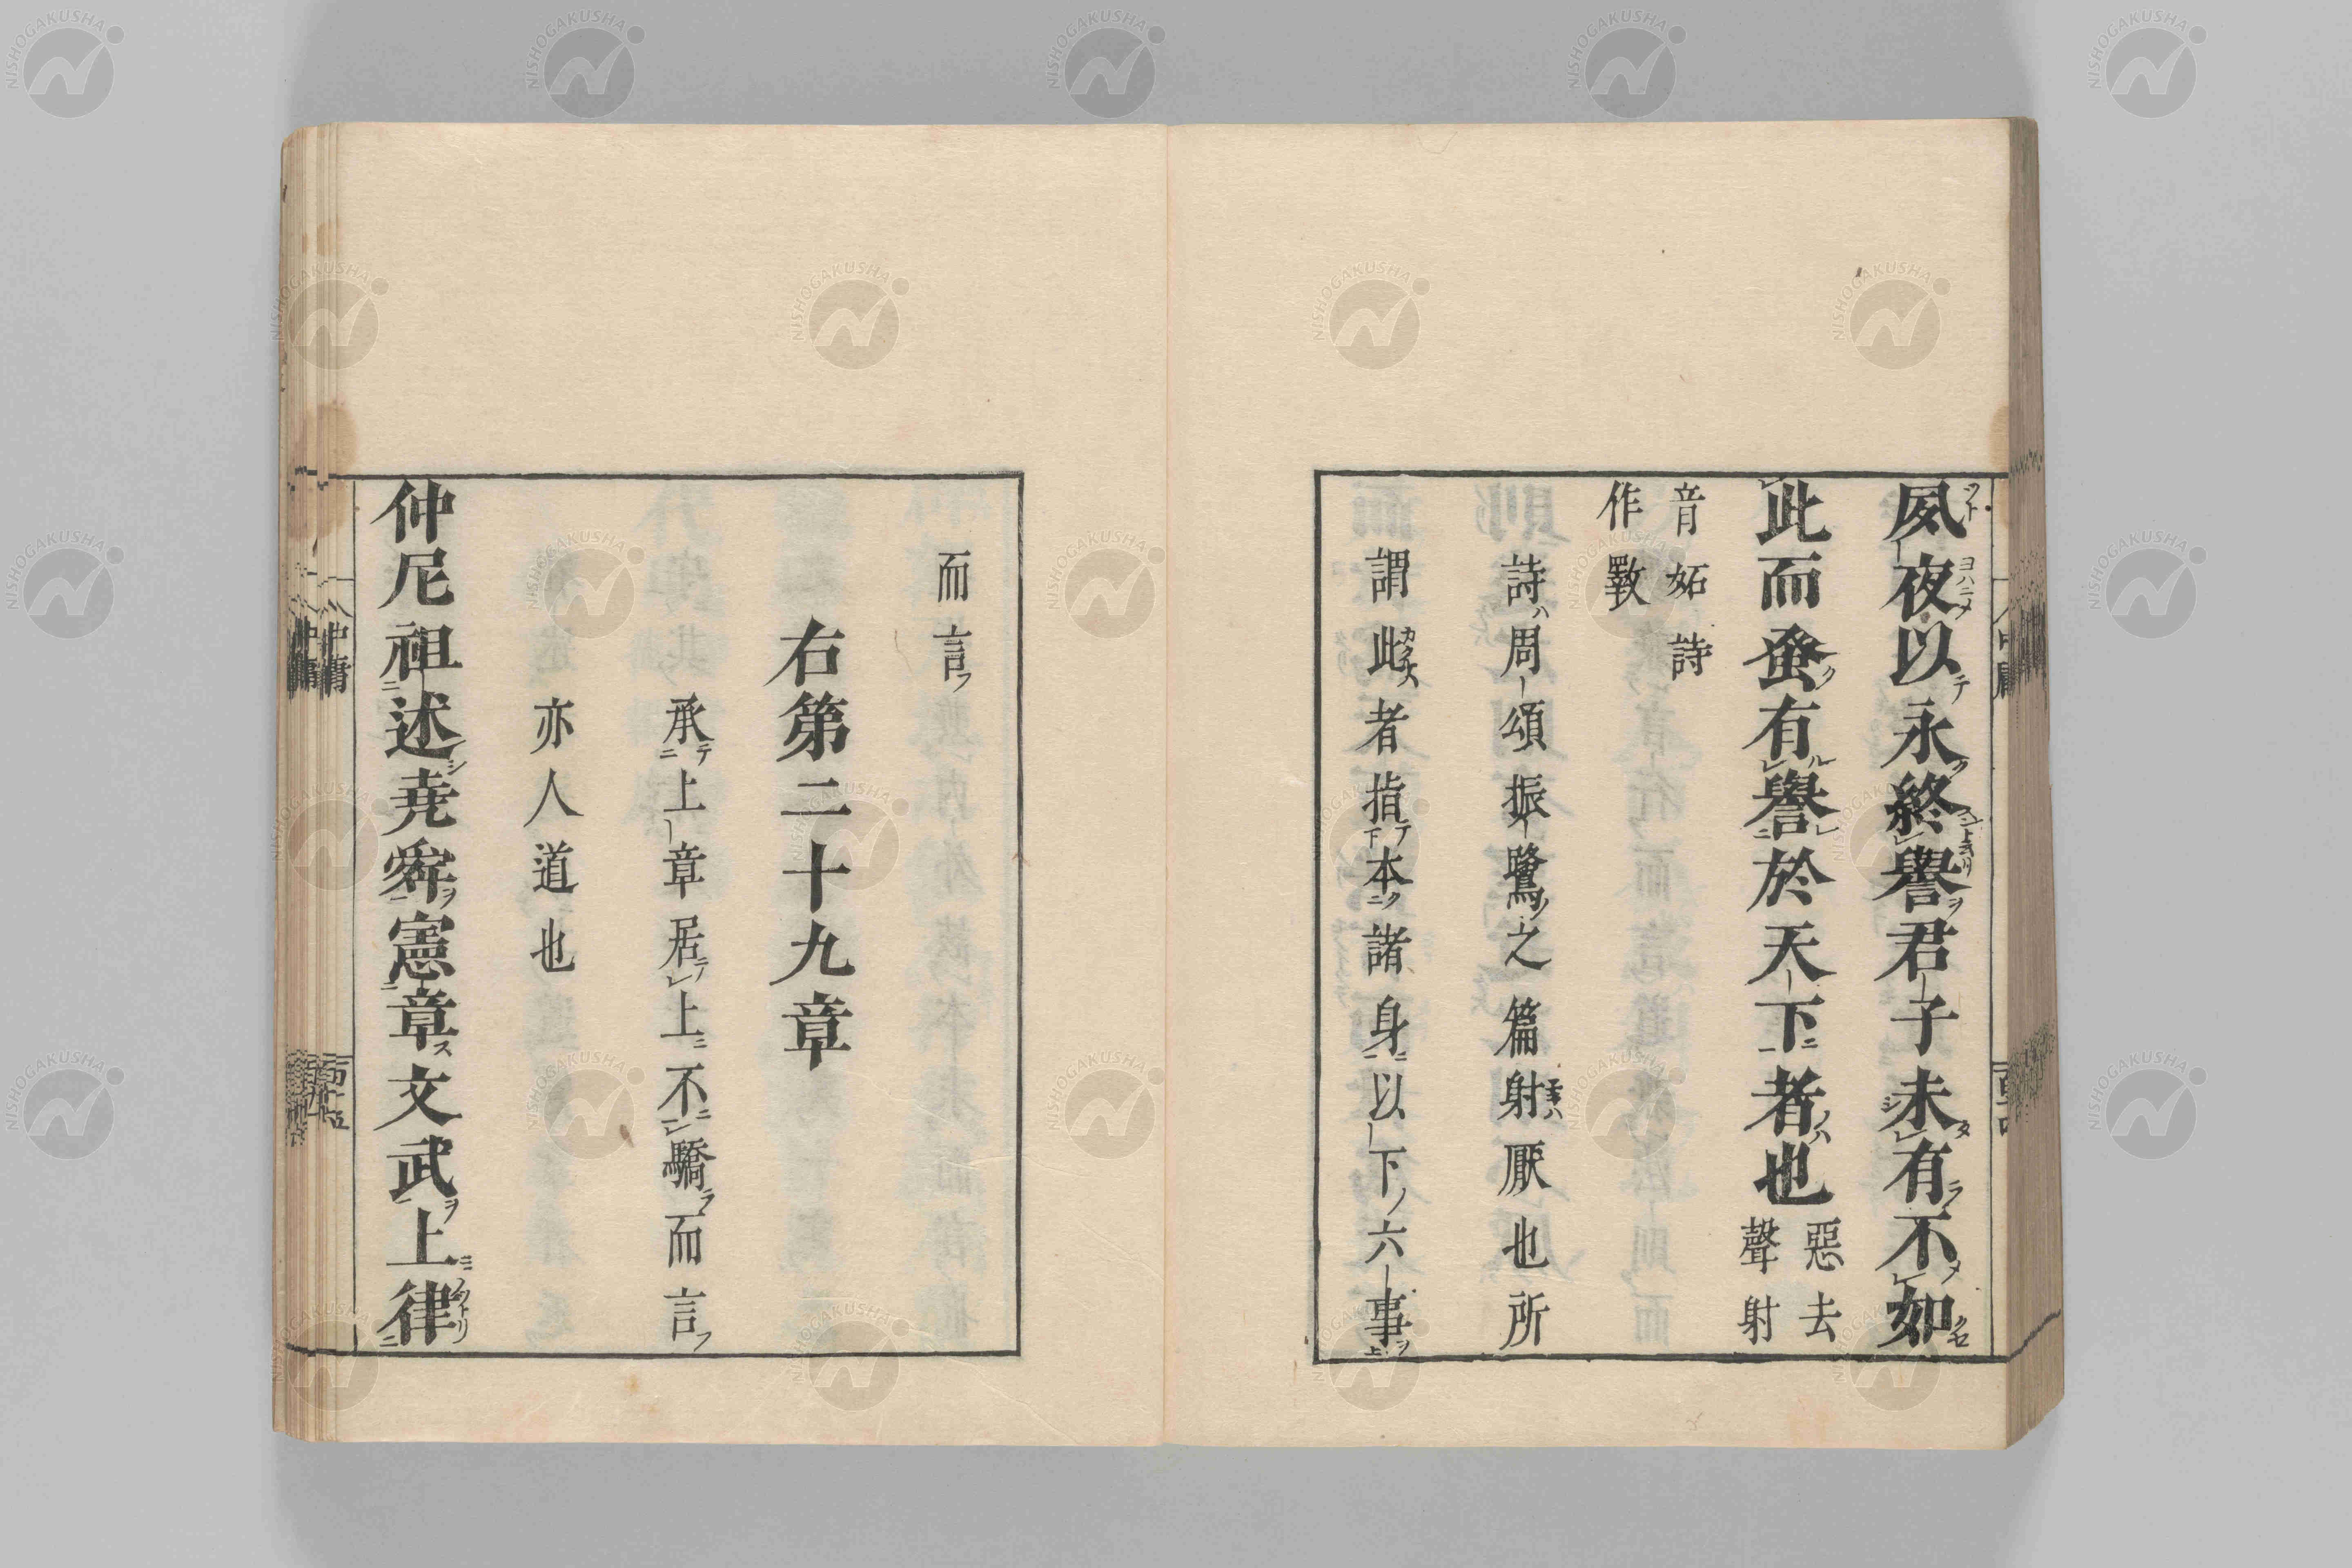 夙夜以永終譽君子未有不如
此而蚤有譽於天下者也惡去
聲射
音妬詩
作斁
詩周頌振鷺之篇射厭也所
謂此者指本諸身以下六事
而言
右第二十九章
承上章居上不驕而言
亦人道也
仲尼祖述堯舜憲章文武上律
中庸